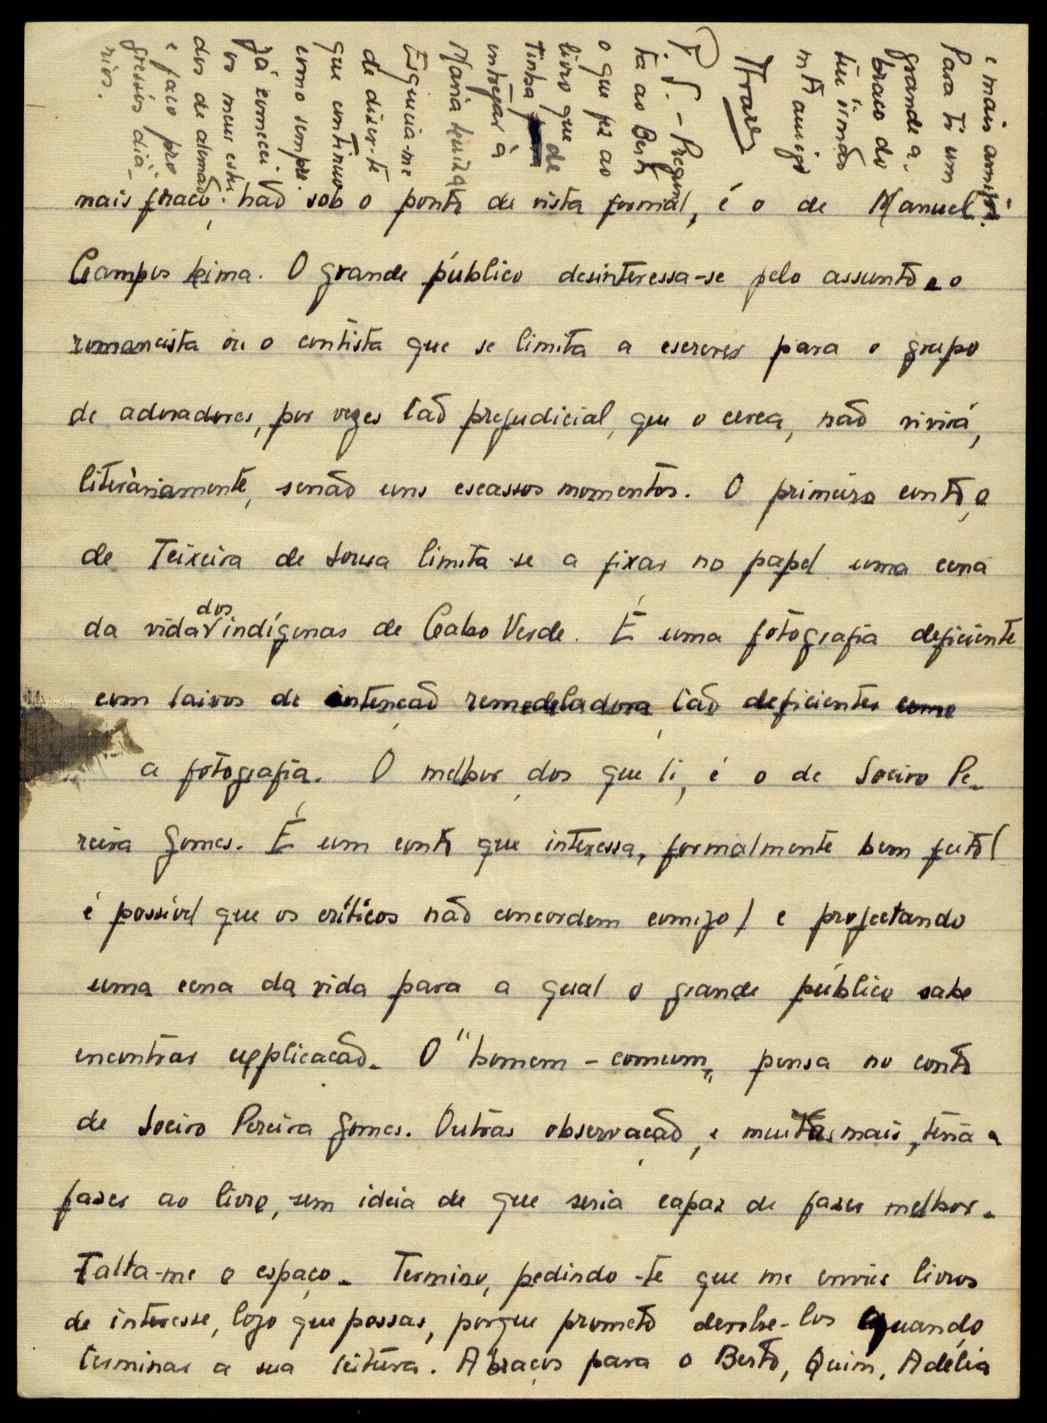 mais fraco, não sob o ponto de vista formal, é o de Manuel
Campos Lima. O grande público desinteressa-se pelo assunto e o
romancista ou o contista que se limita a escrever para o grupo
de adoradores, por vezes tão prejudicial, que o cerca, não vivirá,
literàriamente, senão uns escassos momentos. O primeiro conto, o
de Teixeira de Sousa limita-se a fixar no papel uma cena
da vida dos indígenas de Cabo Verde. É uma fotografia deficiente
com laivos de intenção remodeladora tão deficientes como
a fotografia. O melhor dos que li, é o de Soeiro Pe-
reira Gomes. É um conto que interessa, formalmente bem feito (
é possível que os críticos não concordem comigo) e projectando
uma cena da vida para a qual o grande público sabe
encontrar explicação. O "homem-comum" pensa no conto
de Soeiro Pereira Gomes. Outras observação, e muitas mais, teria a
fazer ao livro, sem ideia de que seria capaz de fazer melhor.
Falta-me o espaço. Termino, pedindo-te que me envies livros
de interesse, logo que possas, porque prometo devolve-los quando
terminar a sua leitura. Abraços para o Berto, Quim, Adélia
e mais amigos.
Para ti um
grande a-
braço do
teu irmão
e amigo
P.S. - Pregun-
ta ao Berto
o que fez ao
livro que
tinha de
entregar à
Maria Luiza
Esquecia-me
de dizer-te
que continuo
como sempre.
Já comecei
os meus estu-
dos de alemão
e faço pro-
gressos diá-
rios.